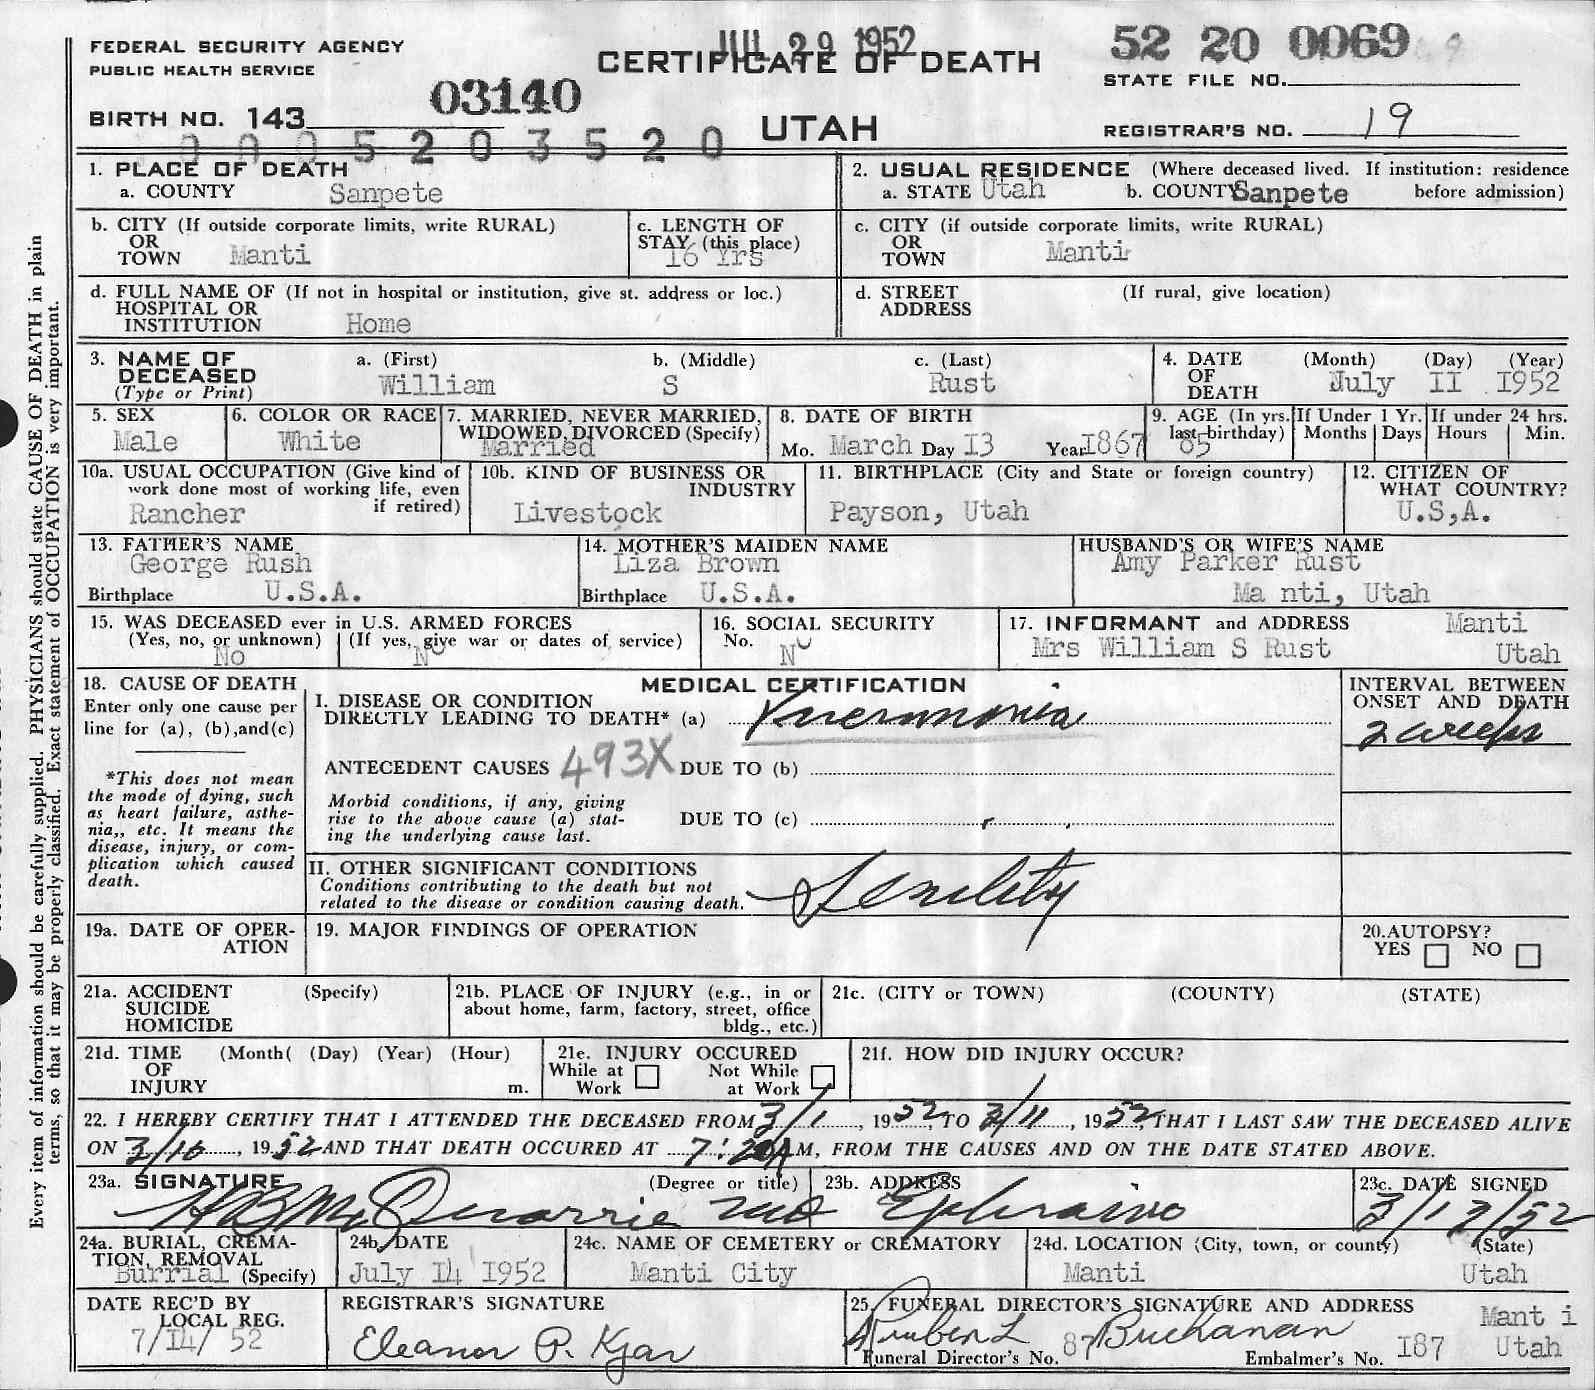 JUL 29 1952
52 20 0069
FEDERAL SECURITY AGENCY
PUBLIC HEALTH SERVICE
CERTIFICATE OF DEATH
STATE FILE NO.
03140
BIRTH NO. 143
UTAH
REGISTRAR'S NO. 19
0 0 0 5 2 0 3 5 2 0
1. PLACE OF DEATH
a. COUNTY Sanpete
2. USUAL RESIDENCE (Where deceased lived. If institution: residence before admission)
a. STATE Utah b. COUNTY Sanpete
b. CITY (If outside corporate limits, write RURAL)
OR
TOWN Manti
c. LENGTH OF
STAY (this place)
16 Yrs
c. CITY (if outside corporate limits, write RURAL)
OR
TOWN Manti
d. FULL NAME OF (If not in hospital or institution, give st. address or loc.)
HOSPITAL OR
INSTITUTION Home
d. STREET (If rural, give location)
ADDRESS
3. NAME OF
DECEASED
(Type or Print)
a. (First) b. (Middle) c. (Last)
William S Rust
4. DATE (Month) (Day) (Year)
OF
DEATH July II 1952
5. SEX
Male
6. COLOR OR RACE
White
7. MARRIED, NEVER MARRIED,
WIDOWED, DIVORCED (Specify)
Married
8. DATE OF BIRTH
Mo. March Day I3 Year I867
9. AGE (In yrs.
last birthday)
85
If Under 1 Yr.
Months Days
If under 24 hrs.
Hours Min.
10a. USUAL OCCUPATION (Give kind of
work done most of working life, even
if retired)
Rancher
10b. KIND OF BUSINESS OR
INDUSTRY
Livestock
11. BIRTHPLACE (City and State or foreign country)
Payson, Utah
12. CITIZEN OF
WHAT COUNTRY?
U.S,A.
13. FATHER'S NAME
George Rush
Birthplace U.S.A.
14. MOTHER'S MAIDEN NAME
Liza Brown
Birthplace U.S.A.
HUSBAND'S OR WIFE'S NAME
Amy Parker Rust
Ma nti, Utah
15. WAS DECEASED ever in U.S. ARMED FORCES
(Yes, no, or unknown) (If yes, give war or dates of service)
No No
16. SOCIAL SECURITY
No.
No
17. INFORMANT and ADDRESS Manti
Mrs William S Rust Utah
18. CAUSE OF DEATH
Enter only one cause per
line for (a), (b),and(c)
*This does not mean
the mode of dying, such
as heart failure, asthe-
nia,, etc. It means the
disease, injury, or com-
plication which caused
death.
MEDICAL CERTIFICATION
I. DISEASE OR CONDITION
DIRECTLY LEADING TO DEATH* (a) Pneumonia
ANTECEDENT CAUSES 493X DUE TO (b)
Morbid conditions, if any, giving
rise to the above cause (a) stat-
ing the underlying cause last.
DUE TO (c)
II. OTHER SIGNIFICANT CONDITIONS
Conditions contributing to the death but not
related to the disease or condition causing death.
Senility
INTERVAL BETWEEN
ONSET AND DEATH
2 weeks
19a. DATE OF OPER-
ATION
19. MAJOR FINDINGS OF OPERATION
20.AUTOPSY?
YES NO
21a. ACCIDENT (Specify)
SUICIDE
HOMICIDE
21b. PLACE OF INJURY (e.g., in or
about home, farm, factory, street, office
bldg., etc.)
21c. (CITY or TOWN) (COUNTY) (STATE)
21d. TIME (Month( (Day) (Year) (Hour)
OF
INJURY m.
21e. INJURY OCCURED
While at Not While
Work at Work
21f. HOW DID INJURY OCCUR?
22. I HEREBY CERTIFY THAT I ATTENDED THE DECEASED FROM 3/1, 1952, TO 3/11, 1952, THAT I LAST SAW THE DECEASED ALIVE
ON 3/10, 1952 AND THAT DEATH OCCURED AT 7:20 AM, FROM THE CAUSES AND ON THE DATE STATED ABOVE.
23a. SIGNATURE (Degree or title)
H B McQuarrie MD
23b. ADDRESS
Ephraim
23c. DATE SIGNED
3/12/52
24a. BURIAL, CREMA-
TION, REMOVAL
Burrial (Specify)
24b. DATE
July I4 1952
24c. NAME OF CEMETERY or CREMATORY
Manti City
24d. LOCATION (City, town, or county) (State)
Manti Utah
DATE REC'D BY
LOCAL REG.
7/I4/ 52
REGISTRAR'S SIGNATURE
Eleanor P. Kjar
25. FUNERAL DIRECTOR'S SIGNATURE AND ADDRESS
Ruben L Buchanan Mant i
Utah
Funeral Director's No. 87 Embalmer's No. I87
Every item of information should be carefully supplied. PHYSICIANS should state CAUSE OF DEATH in plain
terms, so that it may be properly classified. Exact statement of OCCUPATION is very important.